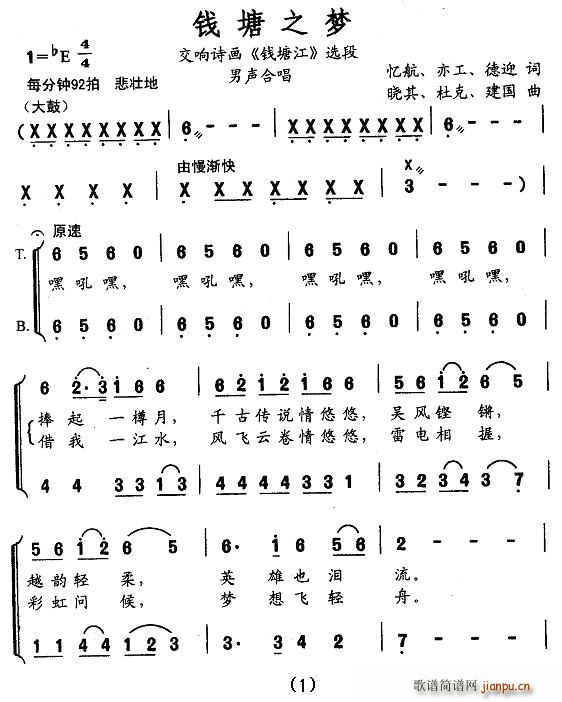 钱塘之梦
1=♭E 4/4
交响诗画《钱塘江》选段
男声合唱
忆航、亦工、德迎 词
晓其、杜克、建国 曲
每分钟92拍 悲壮地
(大鼓)
(X X X X X X X X | 6 - - - | X X X X X X X X | 6 - - - |
由慢渐快
X X X X | X X X X X X X X | X 3 - - ) |
原速
T. 6 5 6 0 | 6 5 6 0 | 6 5 6 0 | 6 5 6 0 |
嘿吼嘿, 嘿吼嘿, 嘿吼嘿, 嘿吼嘿,
B. 6 5 6 0 | 6 5 6 0 | 6 5 6 0 | 6 5 6 0 |
6 2·3 1 6 6 | 6 2 1 2 1 6 6 | 5 6 1 2 6 6 |
捧起一樽月, 千古传说情悠悠, 吴风铿锵,
借我一江水, 风飞云卷情悠悠, 雷电相握,
4 4 3 3 1 3 | 4 4 4 4 3 3 1 | 3 2 3 4 3 7 |
5 6 1 2 6 5 | 6· 1 6 5 6 | 2 - - |
越韵轻柔, 英雄也泪流。
彩虹问候, 梦想飞轻舟。
1 1 4 4 1 2 3 | 3· 3 4 2 2 | 7 - - |
(1)
歌谱简谱网
jianpu.cn